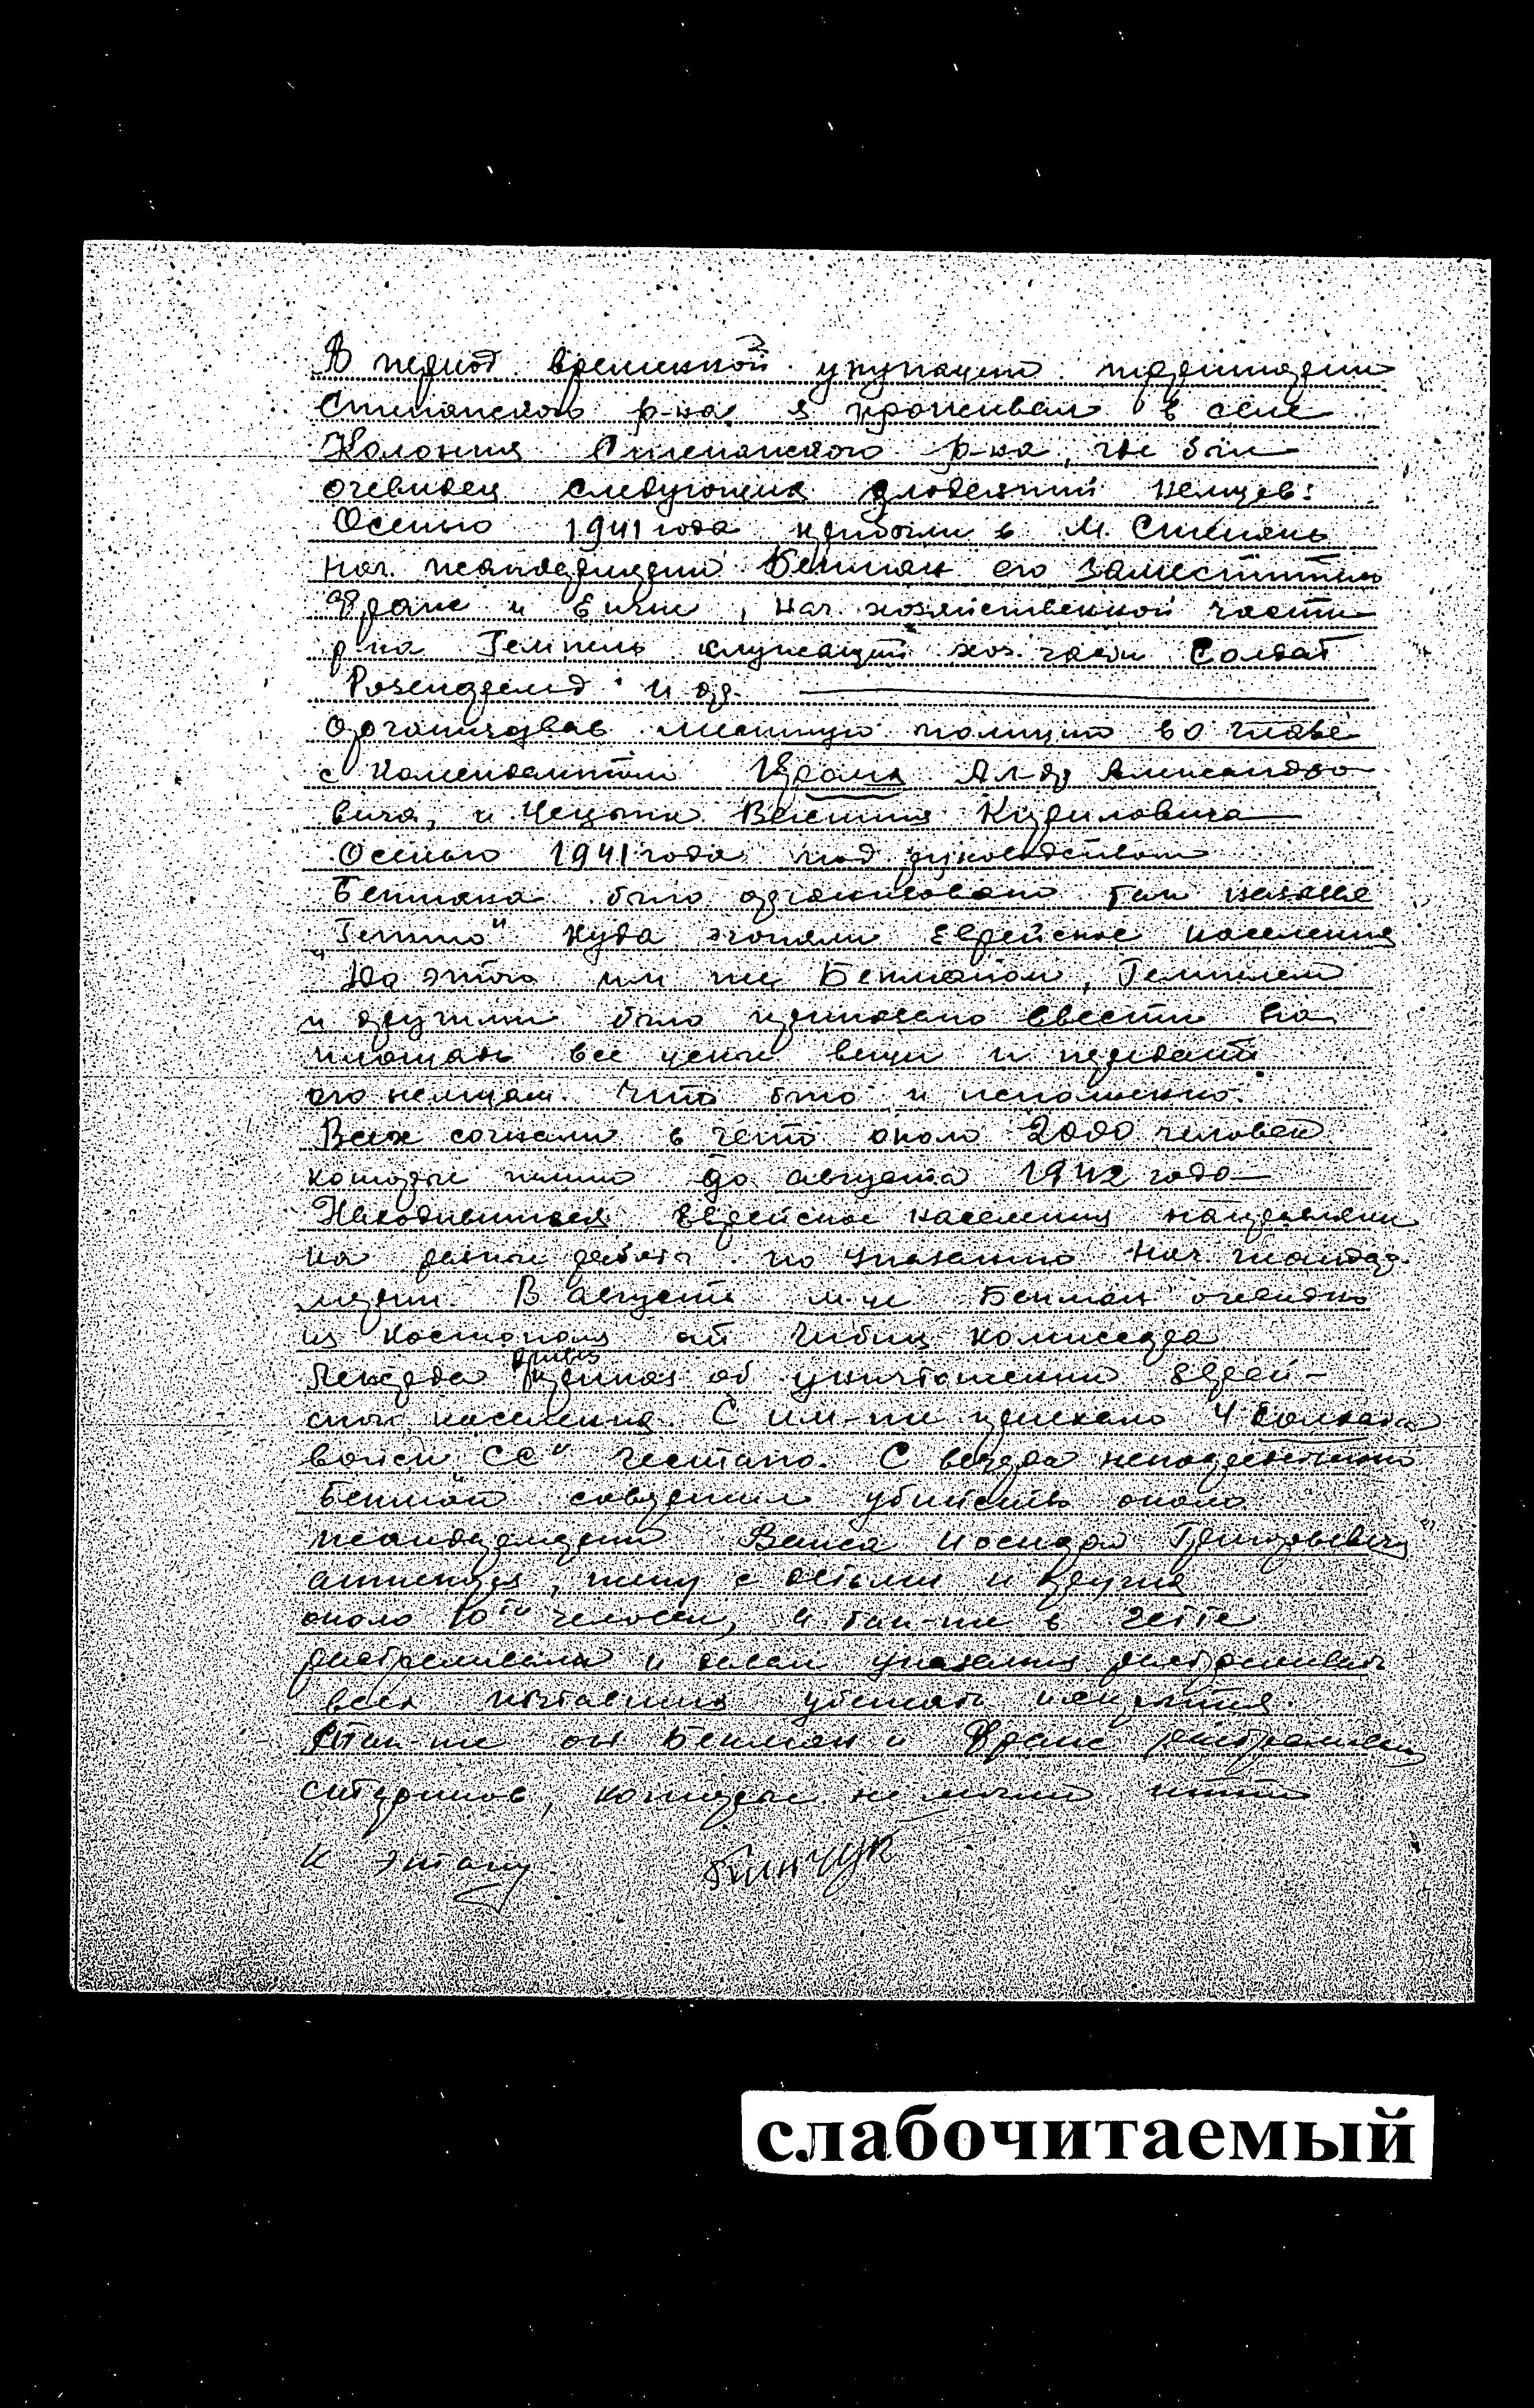 В период временной укупации территории
Степанского р-на я проживал в селе
Колония Степанского р-на, где был
очевидец следующих злодеяний немцев:
Осенью 1941 года прибыли в м. Степань
нач. жандармерии Бекман его заместитель
Франс и , нач. хозяйственной части
р-на Гемпель служащий хоз. части Солдат
Розенфельд и др.
Организовав местную полицию во главе
с комендантом Алдр Александро
вича, и Кириловича
Осенью 1941 года под руководством
Бекмана было организовано так назыв
„Гетто" куда згоняли еврейское население
До этого им же Бекманом, Гемпелем
и другими было приказано свести на
площадь все цены вещи и передать
его немцам. Что было и исполнено.
Всех согнали в гето около 2000 человек
которые жили до августа 1942 года
Находившияся еврейское население направляли
на разные работы по указанию нач. жандар-
мерии. В августе м-це Бекман
из Костополя от комиссара
привез
приказ об уничтожении еврей-
ского населения. С им-же приехало 4 солдата
войск „СС" гестапо. С вечера непосредственно
Бекман совершил убийств около
жандармерии Григорьевич
, жену с детьми и других
около 10ти человек, и так-же в гетте
растреливали и давал указания растреливать
всех пытавшихся убежать
Так-же он Бекман и Франс растреливали
, которые не могли итти
к этапу.